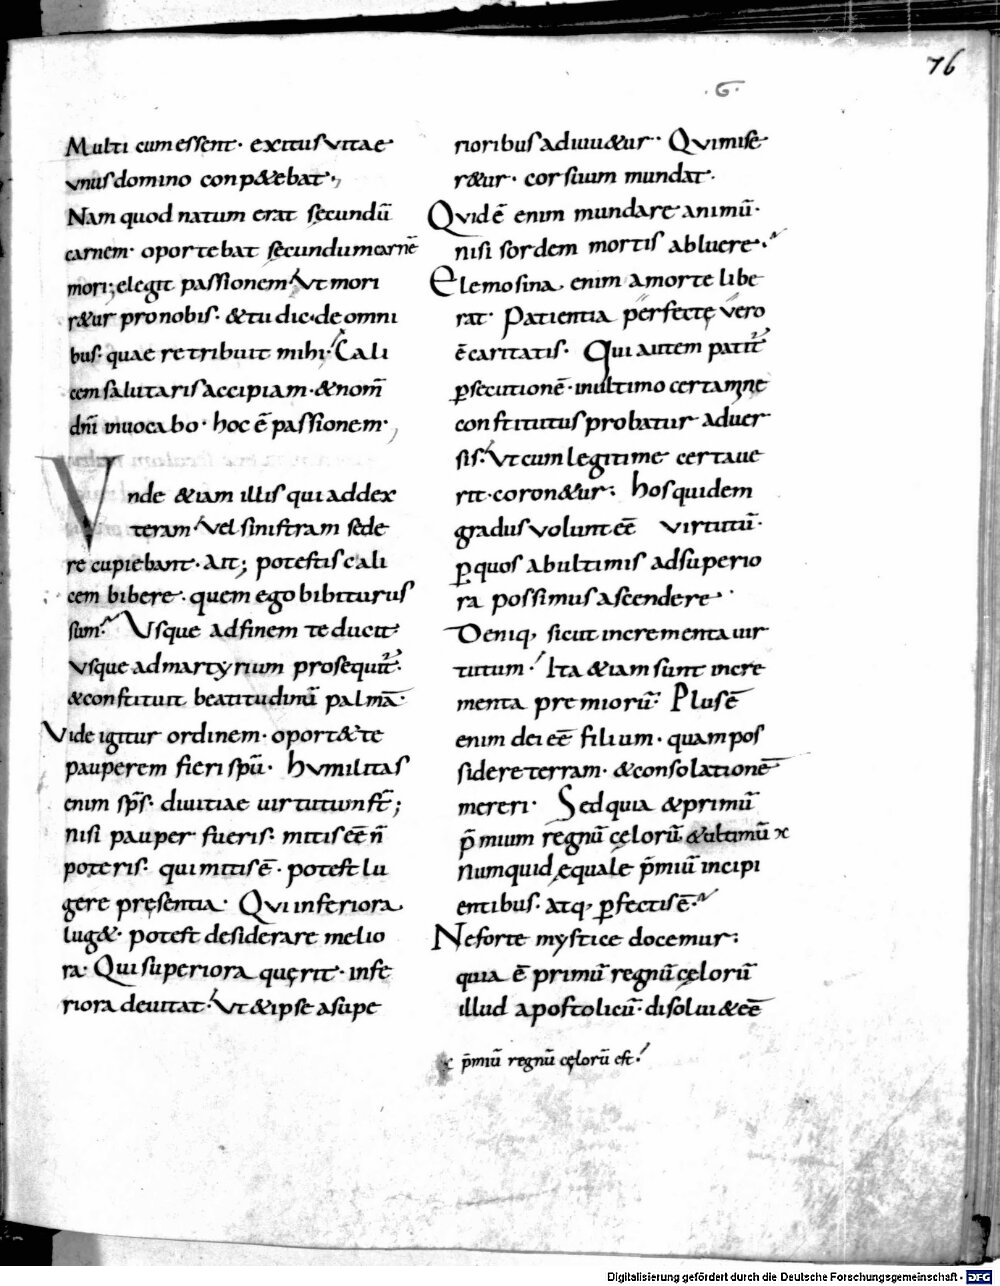 76
.G.
Multi cum essent· exitus vitae
vnus domino conp&ebat·,
Nam quod natum erat secundū
carnem· oportebat secundum carnē
mori; elegit passionem· Vt mori
r&ur pro nobis· & tu dic· de omni
bus· quae retribuit mihi· Cali
cem salutaris accipiam· & nom̄
dn̄i inuocabo· hoc ē passionem·,
Vnde &iam illis qui ad dex
teram· Vel sinistram sede
re cupiebant· Ait; potestis cali
cem bibere· quem ego bibiturus
sum· Vsque ad finem te ducit
vsque ad martyrium prosequit̄·
& constituit beatitudinū palmā·
Vide igitur ordinem· oport& te
pauperem fieri spū· humilitas
enim sp̄s· diuitiae uirtutum st̄;
nisi pauper fueris· mitis eē n̄
poteris· qui mitis ē· potest lu
gere presentia· Qui inferiora
lug&· potest desiderare melio
ra· Qui superiora querit· infe
riora deuitat· Vt & ipse a supe
rioribus adiuu&ur·· Qui mise
r&ur· cor suum mundat·
Quid ē enim mundare animū·
nisi sordem mortis abluere·
Elemosina, enim a morte libe
rat· Patientia perfectę vero
ē caritatis· Qui autem patit̄
p̱secutionē· in ultimo certamine
constitutus probatur aduer
sis· Vt cum legitime certaue
rit· coron&ur; hos quidem
gradus volunt eē virtutū·
p̱ quos ab ultimis ad superio
ra possimus ascendere·
Deniq, sicut incrementa uir
tutum· Ita &iam sunt incre
menta premiorū· Plus ē
enim dei eē filium· quam pos
sidere terram· & consolationē
mereri· Sed quia & primū
p̄mium regnū cęlorū· & ultimū
Numquid ęquale p̄miū incipi
entibus· atq, p̱fectis ē·
Ne forte mystice docemur;
quia ē primū regnū cęlorū
illud apostolicū· disolui & eē
p̄miū regnū cęlorū est·
Digitalisierung gefördert durch die Deutsche Forschungsgemeinschaft - DFG